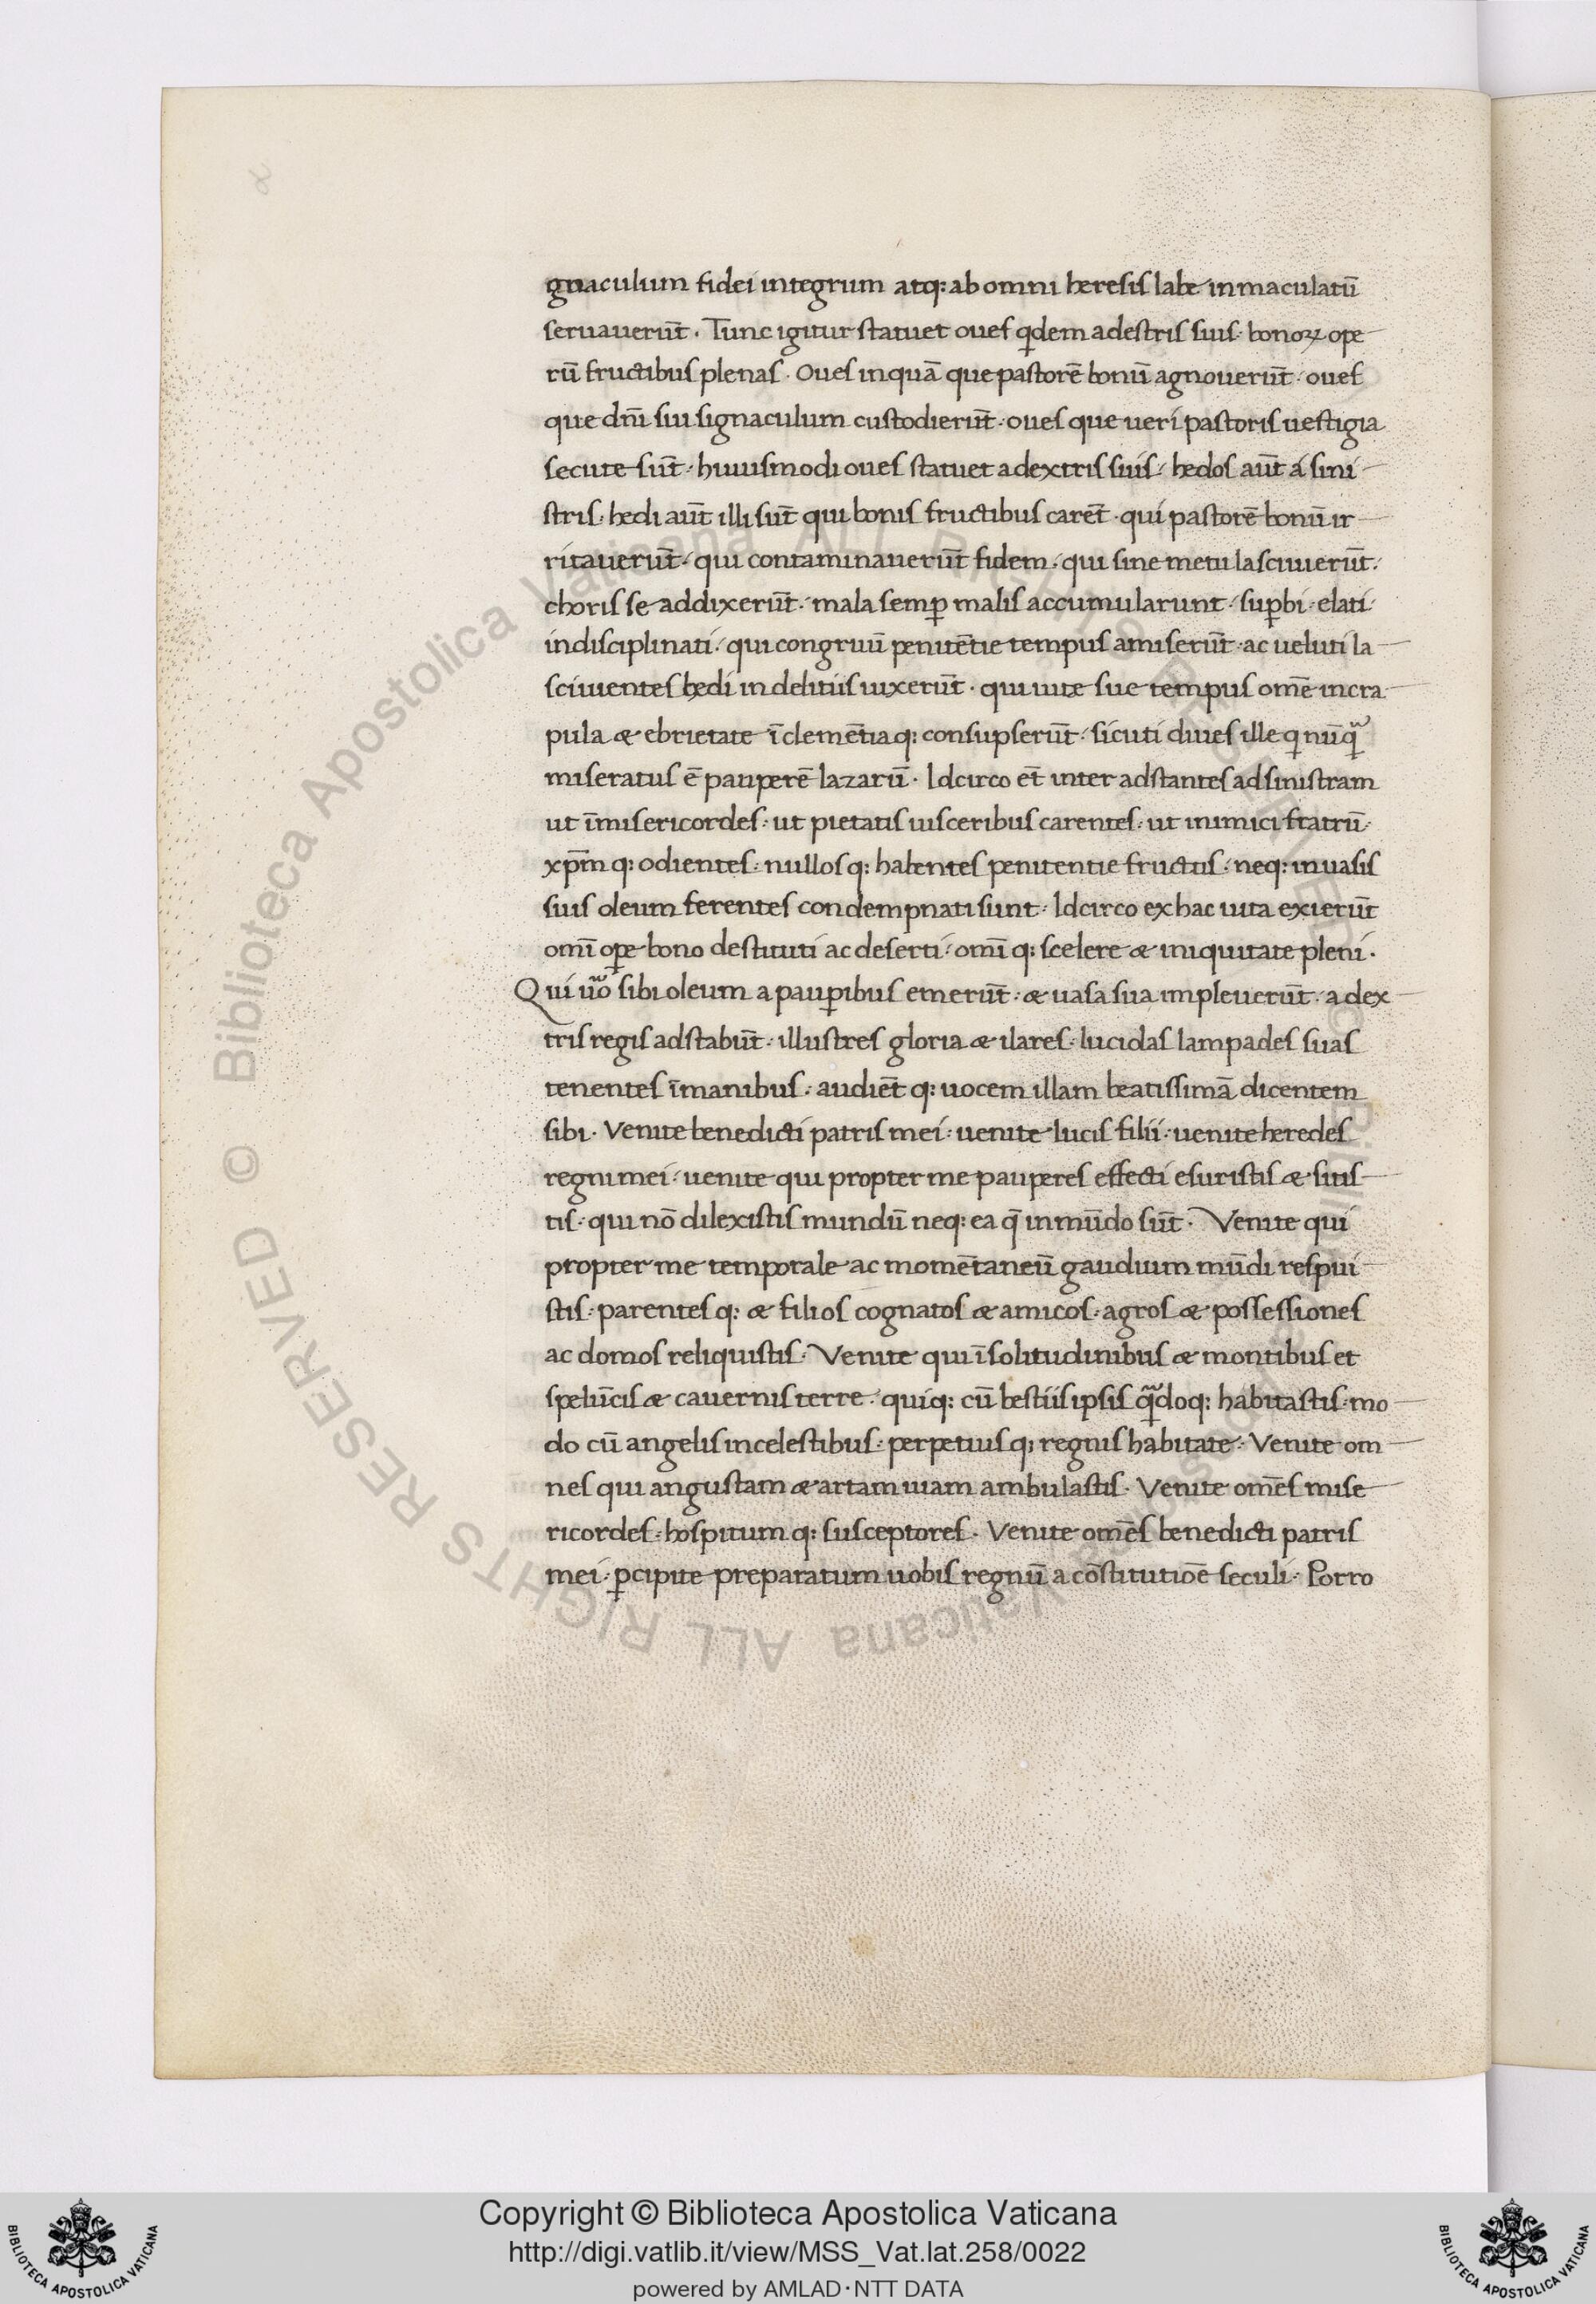 gnaculum fidei integrum atq: ab omni heresis labe inmaculatū
seruauerūt. Tunc igitur statuet oues qdem adestris suis· bonoꝝ ope
rū fructibus plenas. Oues inquā que pastorē bonū agnouerūt: oues
que dn̄i sui signaculum custodierūt: oues que ueri pastoris uestigia
secute sūt: huiusmodi oues statuet a dextris suis: hedos aūt a sini
stris: hedi aūt illi sūt qui bonis fructibus carēt· qui pastorē bonū ir
ritauerūt: qui contaminauerūt fidem: qui sine metu lasciuierūt:
choris se addixerūt: mala semꝑ malis accumularunt: suꝑbi: elati:
indisciplinati: qui congruū penitētie tempus amiserūt: ac ueluti la
sciuientes hedi in delitiis uixerūt· qui uite sue tempus omē in cra
pula & ebrietate īclemētiaq: consupserūt: sicuti diues ille qi nūqᷓ
miseratus ē pauperē lazarū· Idcirco et̄ inter adstantes ad sinistram
ut īmisericordes: ut pietatis uisceribus carentes: ut inimici fratrū:
xp̄m q: odientes: nullos q: habentes penitentie fructus: neq: in uasis
suis oleum ferentes condempnati sunt: Idcirco ex hac uita exierūt
omī oꝑe bono destituti ac deserti: omī q: scelere & iniquitate pleni.
Qui uͦo sibi oleum a pauꝑibus emerūt: & uasa sua impleuerūt: a dex
tris regis adstabūt: illustres gloria & ilares: lucidas lampades suas
tenentes ī manibus: audiēt q: uocem illam beatissimā dicentem
sibi. Venite benedicti patris mei: uenite lucis filii: uenite heredes
regni mei: uenite qui propter me pauperes effecti esuristis & sitis
tis: qui nō dilexistis mundū neq: ea q̄ in mūdo sūt. Venite qui
propter me temporale ac momētaneū gaudium mūdi respui
stis: parentes q: & filios cognatos & amicos: agros & possessiones
ac domos reliquistis. Venite qui ī solitudinibus & montibus et
spelūcis & cauernis terre: quiq: cū bestiis ipsis qᷓdoq: habitastis: mo
do cū angelis in celestibus: perpetuis q: regnis habitate: Venite om
nes qui angustam & artam uiam ambulastis. Venite omēs mise
ricordes: hospitum q: susceptores. Venite omēs benedicti patris
mei: ꝑcipite preparatum uobis regnū a cōstitutiōe seculi: Porro
Copyright © Biblioteca Apostolica Vaticana
http://digi.vatlib.it/view/MSS_Vat.lat.258/0022
powered by AMLAD·NTT DATA
BIBLIOTECA APOSTOLICA VATICANA
BIBLIOTECA APOSTOLICA VATICANA
© Biblioteca Apostolica Vaticana ALL RIGHTS RESERVED © Biblioteca Apostolica Vaticana ALL RIGHTS RESERVED